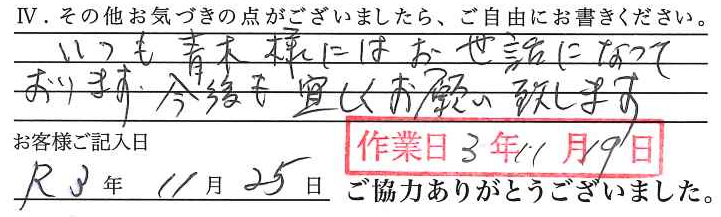 Ⅳ．その他お気づきの点がございましたら、ご自由にお書きください。
いつも青木様にはお世話になって
おります。今後も宜しくお願い致します
お客様ご記入日
作業日 3年11月19日
R3年 11月 25日
ご協力ありがとうございました。